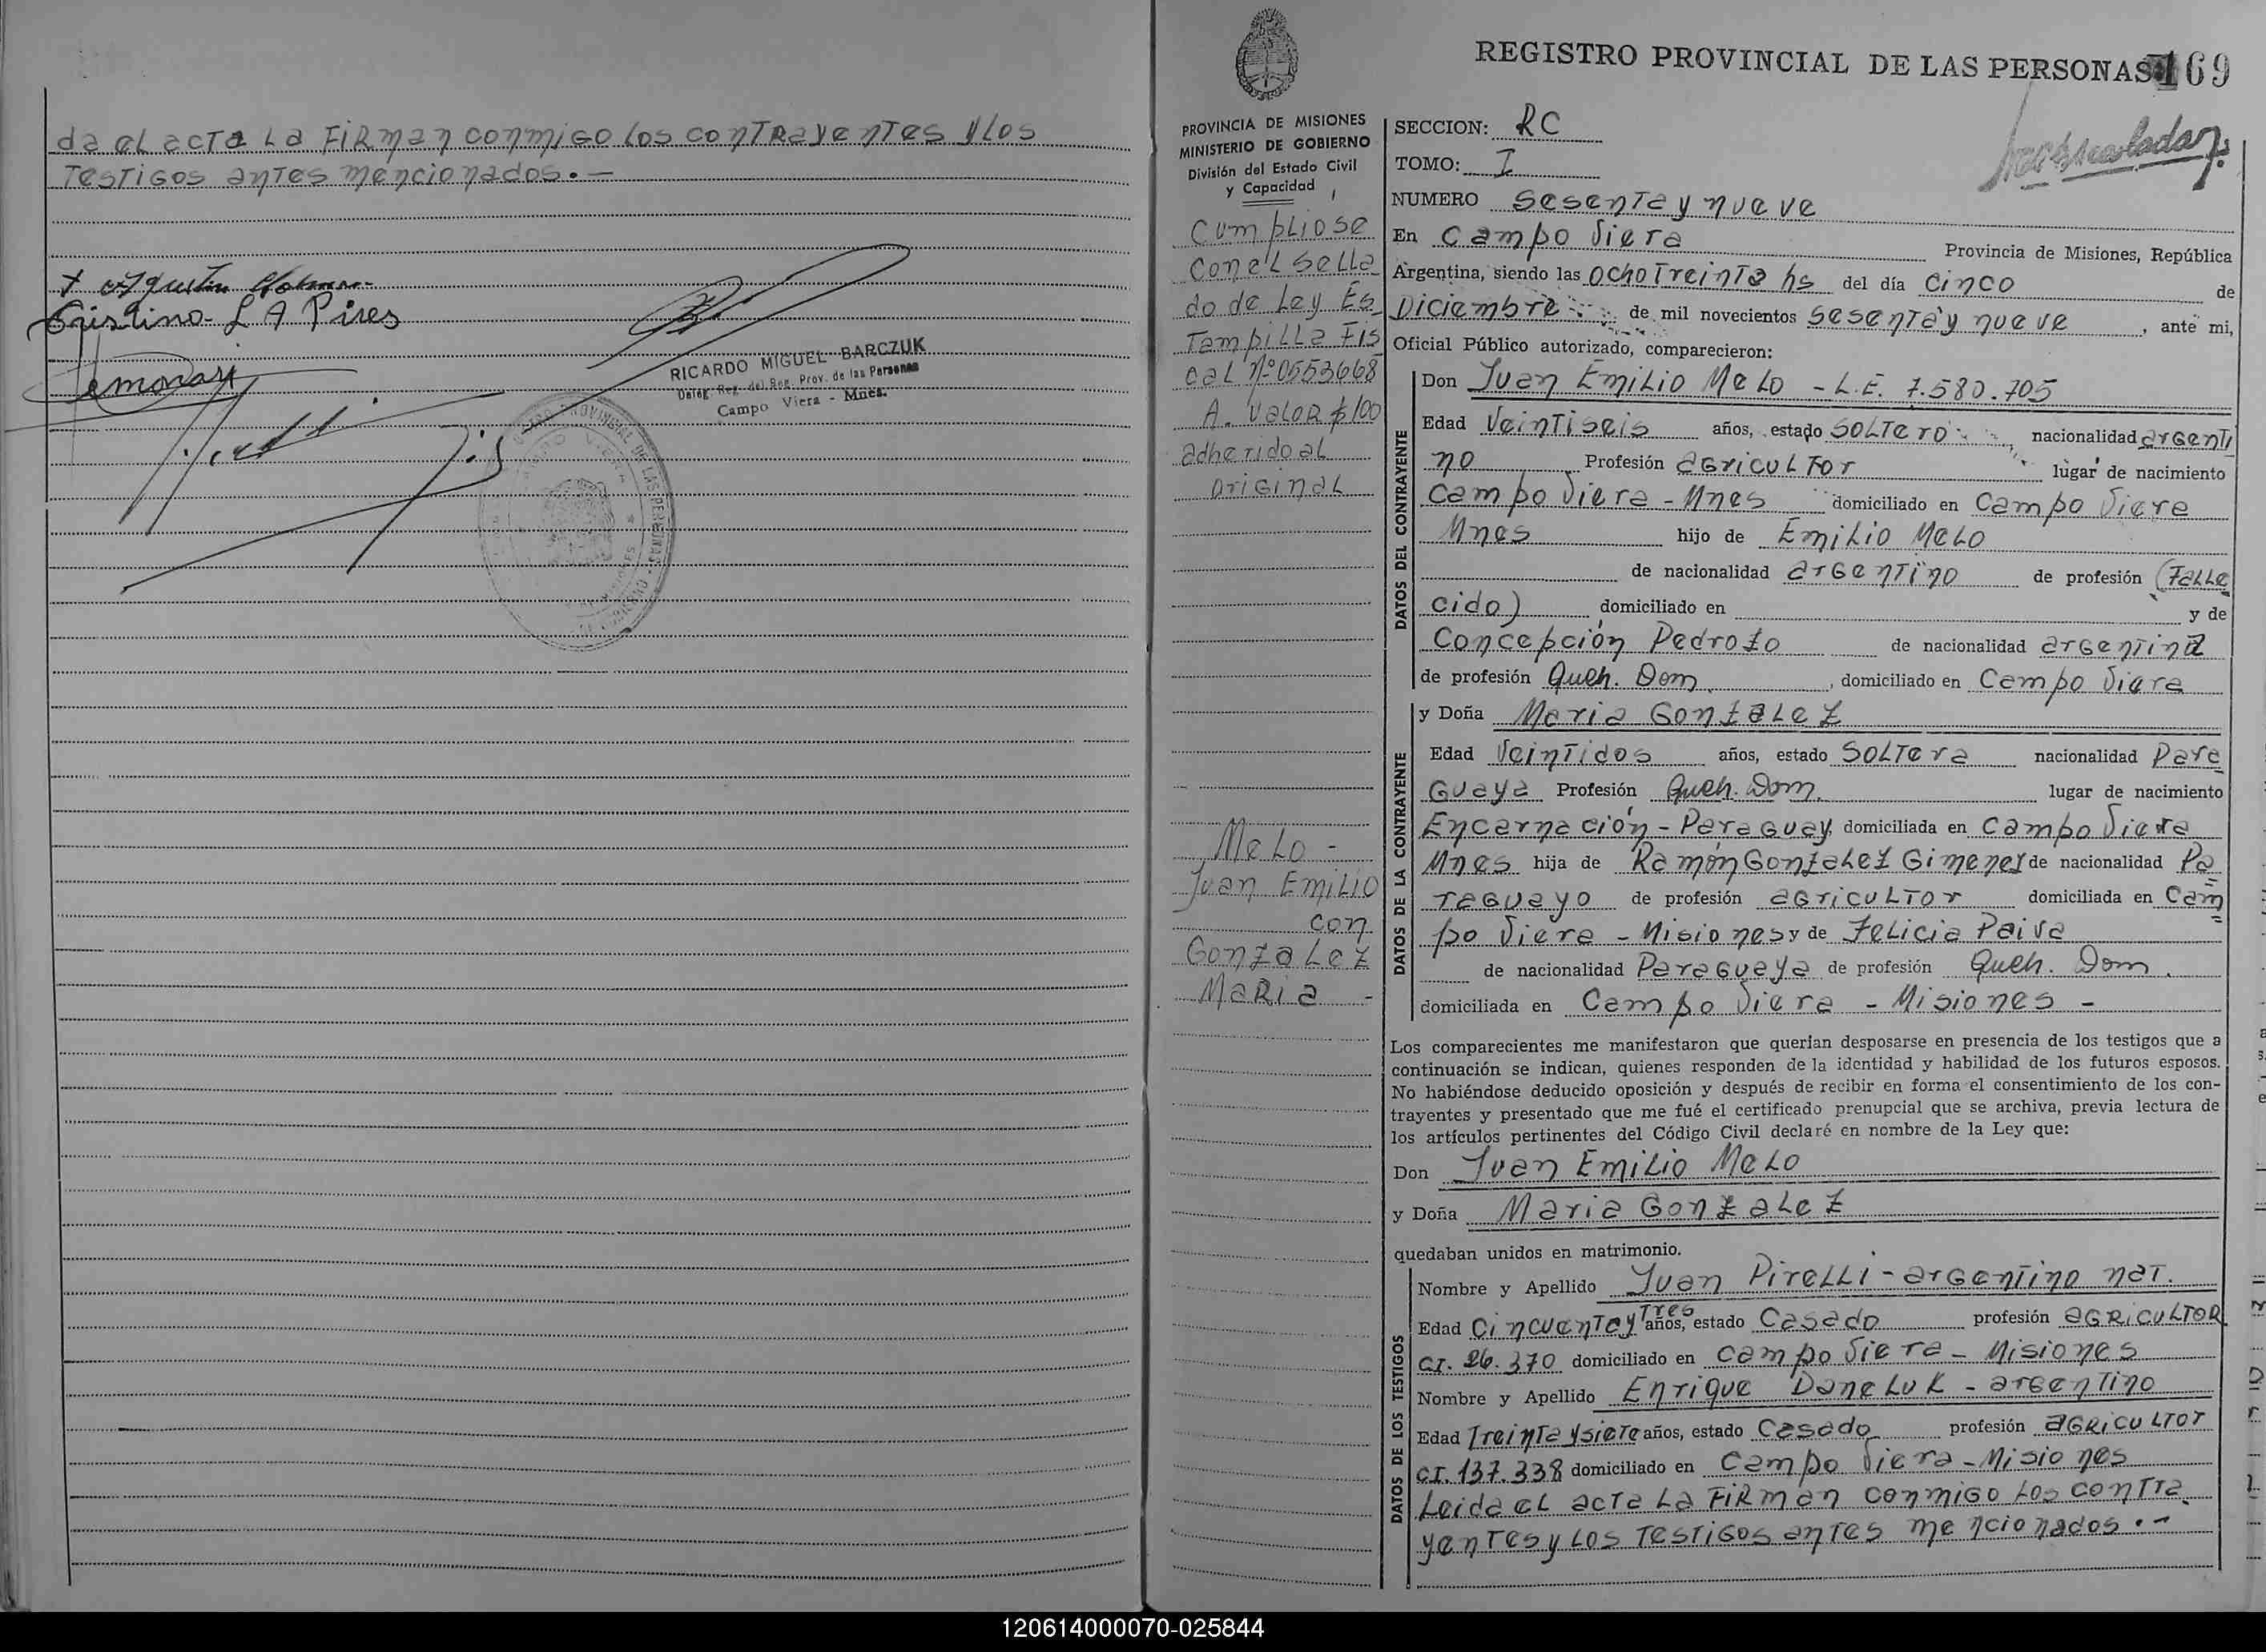 da el acta La Firman conmigo los contrayentes y los
Testigos antes mencionados. —
Cristino L A Pires
RICARDO MIGUEL BARCZUK
Deleg. Reg. del Reg. Prov. de las Personas
Campo Viera - Mnes.
REGISTRO PROVINCIAL DE LAS PERSONAS
69
PROVINCIA DE MISIONES
MINISTERIO DE GOBIERNO
División del Estado Civil
y Capacidad
Cumpliose
con el sella
do de Ley Es
Tampilla Fis
cal Nº 0553668
A. Valor $ 100
adherido al
original
Melo -
Juan Emilio
con
Gonzalez
Maria -
SECCION: RC
TOMO: I
NUMERO Sesenta y nueve
En Campo Viera Provincia de Misiones, República
Argentina, siendo las ocho Treinta hs del día cinco de
Diciembre de mil novecientos sesenta y nueve, ante mi,
Oficial Público autorizado, comparecieron:
DATOS DEL CONTRAYENTE
Don Juan Emilio Melo - L.E. 7.580.705
Edad Veintiseis años, estado Soltero nacionalidad argenti
no Profesión agricultor lugar de nacimiento
Campo Viera - Mnes domiciliado en Campo Viera
Mnes hijo de Emilio Melo
de nacionalidad argentino de profesión (Falle
cido) domiciliado en y de
Concepción Pedrozo de nacionalidad argentina
de profesión Queh. Dom., domiciliado en Campo Viera
DATOS DE LA CONTRAYENTE
y Doña Maria Gonzalez
Edad Veintidos años, estado Soltera nacionalidad Para
guaya Profesión Queh. Dom. lugar de nacimiento
Encarnación - Paraguay, domiciliada en Campo Viera
Mnes hija de Ramón Gonzalez Gimenez de nacionalidad Pa
raguayo de profesión agricultor domiciliada en Cam
po Viera - Misiones y de Felicia Paiva
de nacionalidad Paraguaya de profesión Queh. Dom.
domiciliada en Campo Viera - Misiones -
Los comparecientes me manifestaron que querían desposarse en presencia de los testigos que a
continuación se indican, quienes responden de la identidad y habilidad de los futuros esposos.
No habiéndose deducido oposición y después de recibir en forma el consentimiento de los con-
trayentes y presentado que me fué el certificado prenupcial que se archiva, previa lectura de
los artículos pertinentes del Código Civil declaré en nombre de la Ley que:
Don Juan Emilio Melo
y Doña Maria Gonzalez
quedaban unidos en matrimonio.
DATOS DE LOS TESTIGOS
Nombre y Apellido Juan Pirelli - argentino nat.
Edad Cincuenta y Tres años, estado Casado profesión agricultor
CI. 26.370 domiciliado en Campo Viera - Misiones
Nombre y Apellido Enrique Daneluk - argentino
Edad Treinta y siete años, estado Casado profesión agricultor
CI. 137.338 domiciliado en Campo Viera - Misiones
Leida el acta La Firman conmigo los contra
yentes y los Testigos antes mencionados. -
120614000070-025844